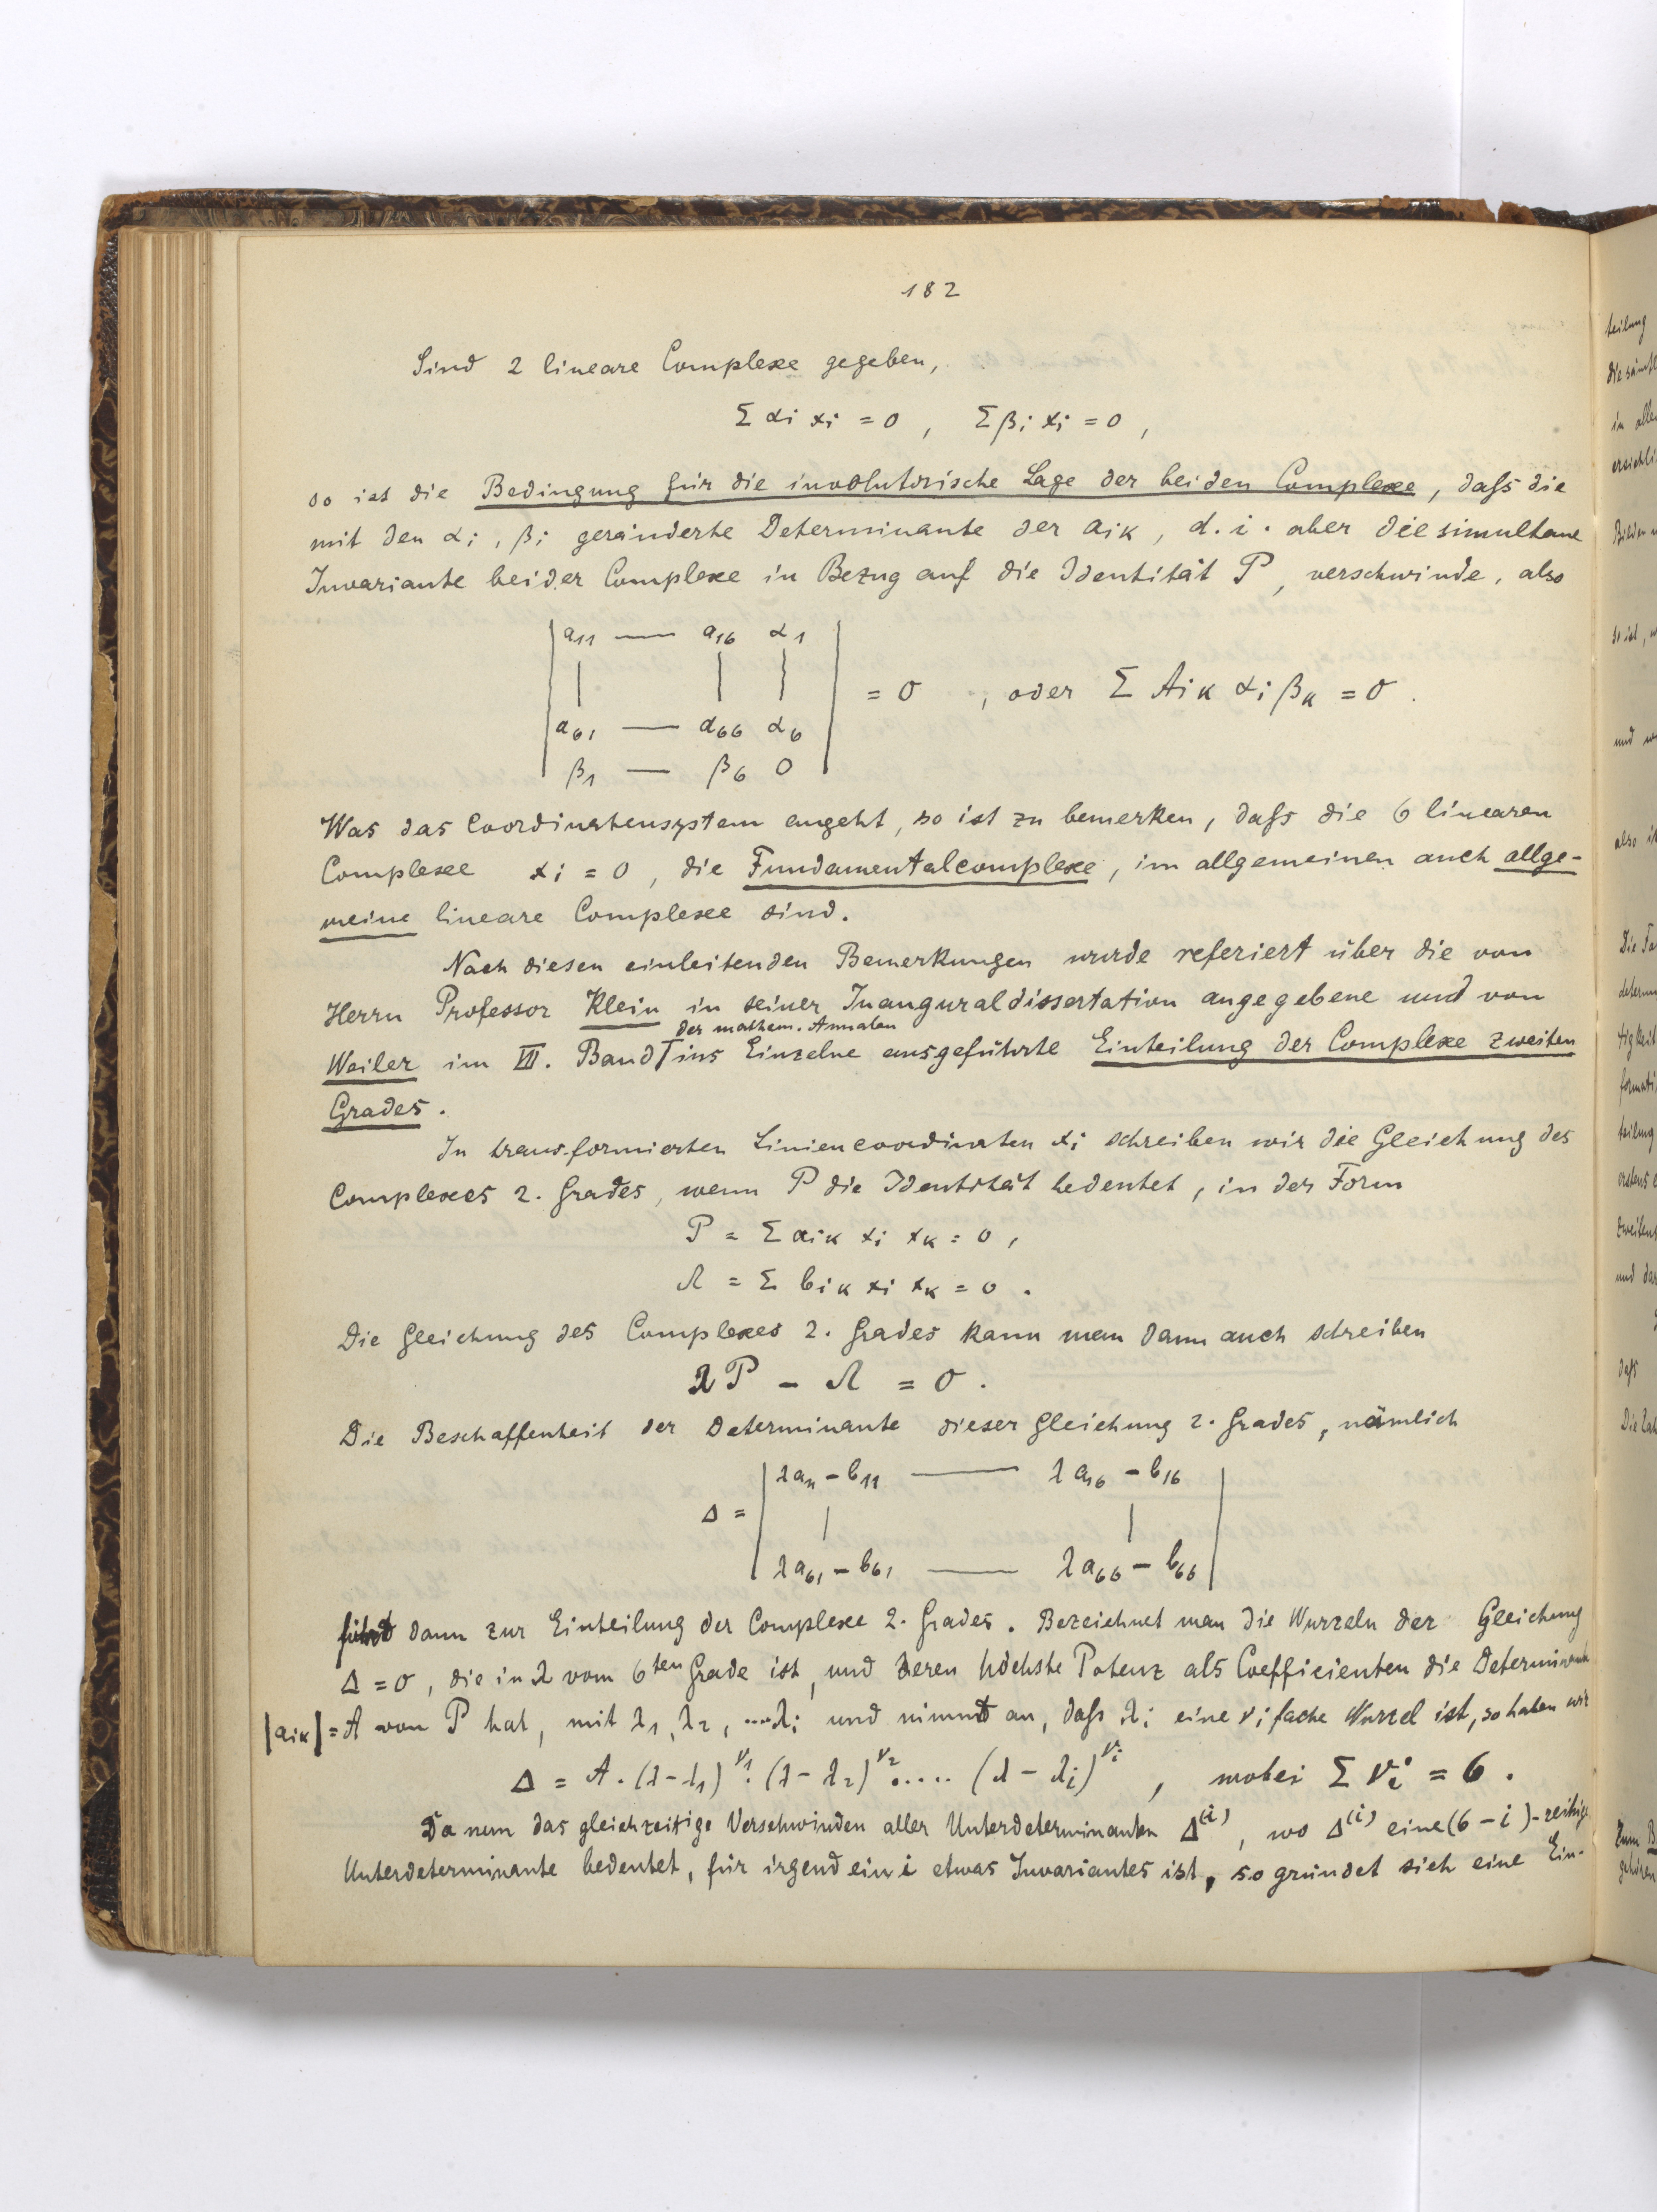 182
Sind 2 lineare Complexe gegeben,
Σ αi xi = 0 , Σ βi xi = 0 ,
so ist die Bedingung für die involutorische Lage der beiden Complexe, daſs die
mit den αi, βi geränderte Determinante der aik, d.i. aber die simultane
Invariante beider Complexe in Bezug auf die Identität P, verschwinde, also
a11 — a16 α1
= 0 , oder Σ Aik αi βk = 0 .
a61 — a66 α6
β1 — β6 0
Was das Coordinatensystem angeht, so ist zu bemerken, daſs die 6 linearen
Complexe xi = 0, die Fundamentalcomplexe, im allgemeinen auch allge-
meine lineare Complexe sind.
Nach diesen einleitenden Bemerkungen wurde referiert über die von
Herrn Professor Klein in seiner Inauguraldissertation angegebene und von
der mathem. Annalen
Weiler im VII. Band ins Einzelne ausgeführte Einteilung der Complexe zweiten
Grades.
In transformierten Liniencoordinaten xi schreiben wir die Gleichung des
Complexes 2. Grades, wenn P die Identität bedeutet, in der Form
P = Σ aik xi xk = 0 ,
Λ = Σ bik xi xk = 0 .
Die Gleichung des Complexes 2. Grades kann man dann auch schreiben
λP - Λ = 0 .
Die Beschaffenheit der Determinante dieser Gleichung 2. Grades, nämlich
λa11 - b11 — λa16 - b16
Δ =
λa61 - b61 — λa66 - b66
führt dann zur Einteilung der Complexe 2. Grades. Bezeichnet man die Wurzeln der Gleichung
Δ = 0, die in λ vom 6ten Grade ist, und deren höchste Potenz als Coefficienten die Determinante
|aik| = A von P hat, mit λ1, λ2, ....λi und nimmt an, daſs λi eine νi fache Wurzel ist, so haben wir
Δ = A . (λ-λ1)^ν1 . (λ-λ2)^ν2 ..... (λ-λi)^νi , wobei Σ νi = 6 .
Da nun das gleichzeitige Verschwinden aller Unterdeterminanten Δ(i), wo Δ(i) eine (6-i)-reihige
Unterdeterminante bedeutet, für irgend ein i etwas Invariantes ist, so gründet sich eine Ein-